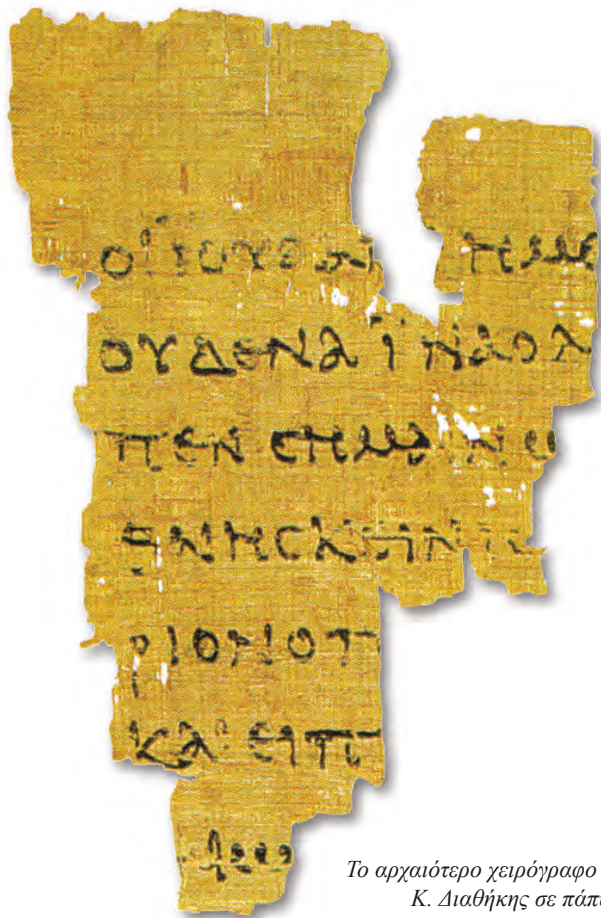 ΟΙΙΟΥΔΑΙ ΗΜΕ
ΟΥΔΕΝΑΪΝΑΟΛ
ΠΕΝCΗΜΑΙΝΩ
ΘΝΗCΚΕΙΝΙC
ΡΙΟΝΟΠ
ΚΑΙΕΙΠ
Το αρχαιότερο χειρόγραφο
Κ. Διαθήκης σε